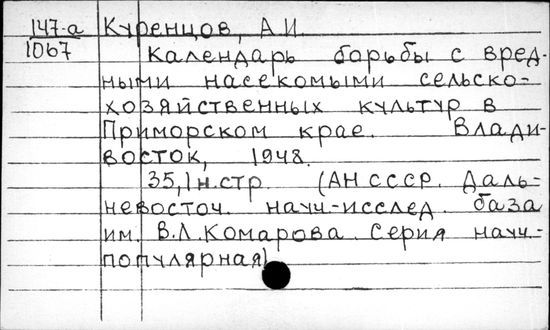 147-а Куренцов, А.И.
1067 Календарь борьбы с вред-
ными насекомыми сельско-
хозяйственных культур в
Приморском крае. Влади-
восток, 1948.
35,1н.стр. (АН СССР. Даль-
невосточ. науч-исслед. база
им. В.Л.Комарова. Серия науч.-
популярная)